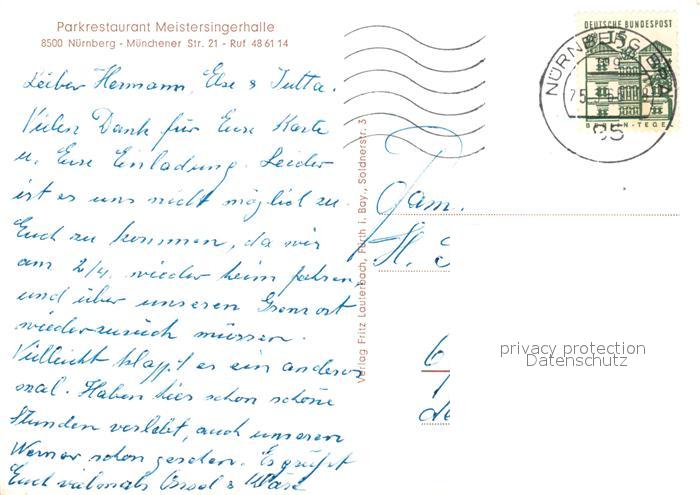 Parkrestaurant Meistersingerhalle
8500 Nürnberg - Münchener Str. 21 - Ruf 48 61 14
Lieber Hermann, Else & Jutta.
Vielen Dank für Eure Karte
u. Eure Einladung. Leider
ist es uns nicht möglich zu
Euch zu kommen, da wir
am 2/4. wieder heim fahren
und über unseren Grenzort
wieder zurück müssen.
Vielleicht klappt es ein anderes
mal. Haben hier schon schöne
Stunden verlebt, auch unseren
Werner schon gesehen. Es grüßt
Euch vielmals &
Verlag Fritz Lauterbach, Fürth i. Bay., Soldnerstr. 3
DEUTSCHE BUNDESPOST
15
BERLIN-TEGEL
NÜRNBERG
85
Fam.
H.
6
privacy protection
Datenschutz